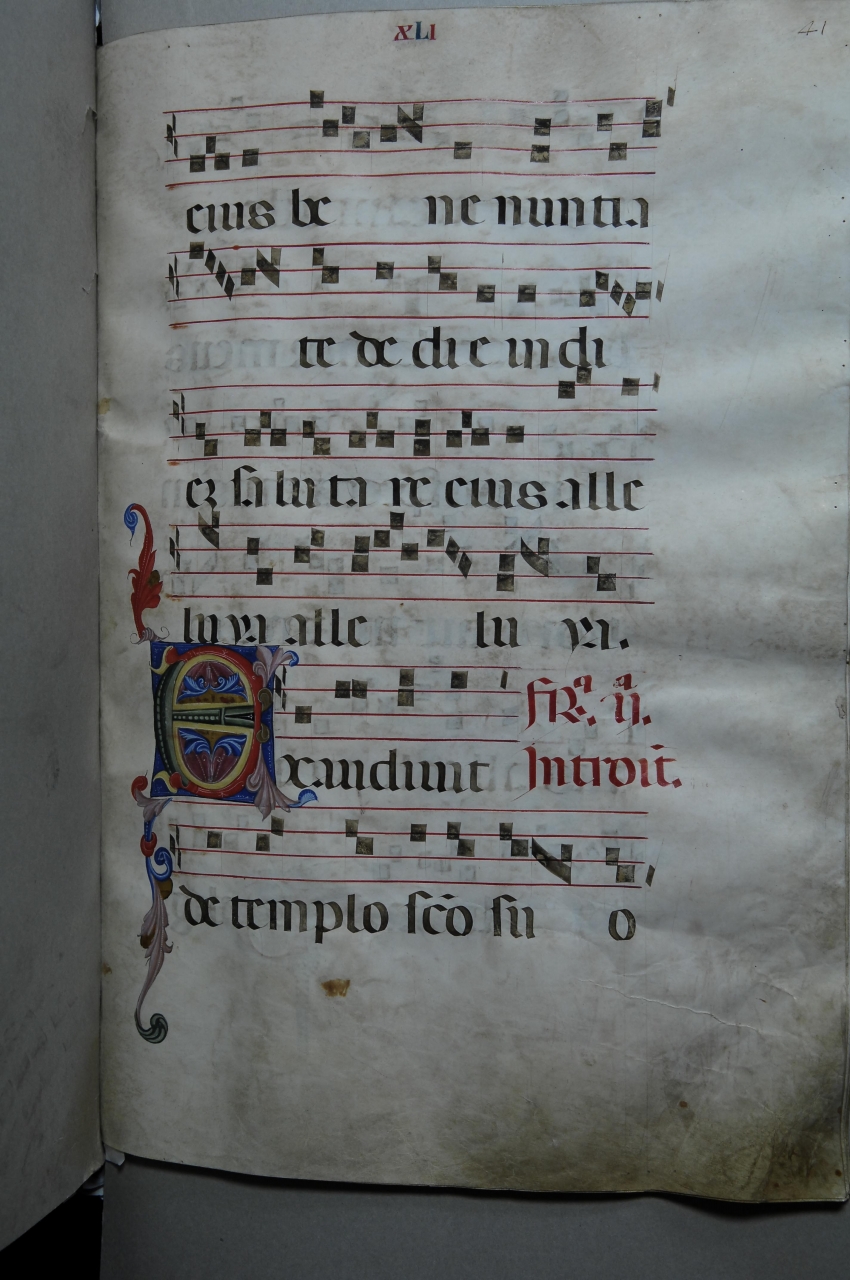 XLI 41
eius be ne nuntia
te de di e in di
eʒ ſa lu ta re eius alle
lu ya alle lu ya.
Exaudiunt
FR.ᵃ ij.ᵃ
Introit̄.
de templo ſc̄o ſu o